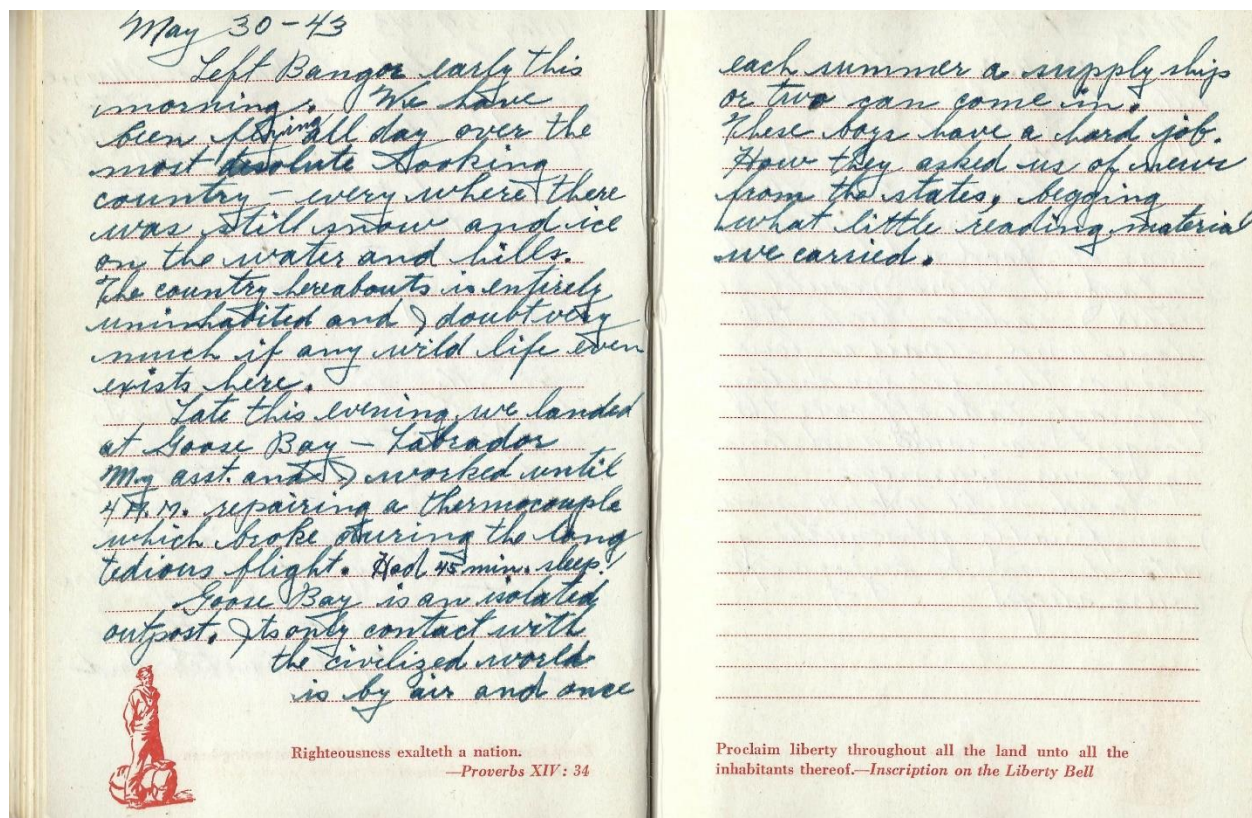 May 30-43
Left Bangor early this
morning. We have
been flying all day over the
most desolute looking
country - every where there
was still snow and ice
on the water and hills.
The country hereabouts is entirely
uninhabited and I doubt very
much if any wild life even
exists here.
Late this evening we landed
at Goose Bay - Labrador
My asst. and I worked until
4 A.M. repairing a thermocouple
which broke during the long
tedious flight. Had 45 min. sleep.
Goose Bay is an isolated
outpost. Its only contact with
the civilized world
is by air and once
Righteousness exalteth a nation.
—Proverbs XIV: 34
each summer a supply ship
or two can come in.
These boys have a hard job.
How they asked us of news
from the states, begging
what little reading material
we carried.
Proclaim liberty throughout all the land unto all the
inhabitants thereof.—Inscription on the Liberty Bell